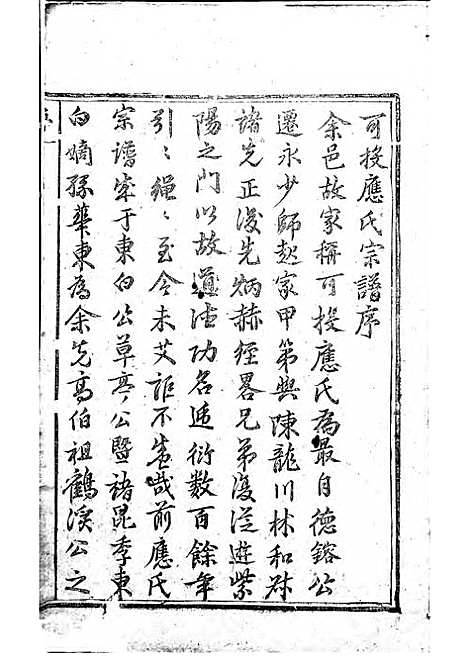 可投應氏宗譜序
余邑故家稱可投應氏為最自德鎔公
遷永少師起家甲第與陳龍川林和叔
諸先正後先炳赫經畧兄弟復從遊紫
陽之門以故道德功名延衍數百餘年
引〻繩〻至今未艾詎不盛哉前應氏
宗譜察于東白公草亭公暨諸昆季東
白嫡孫華東為余先高伯祖鶴溪公之